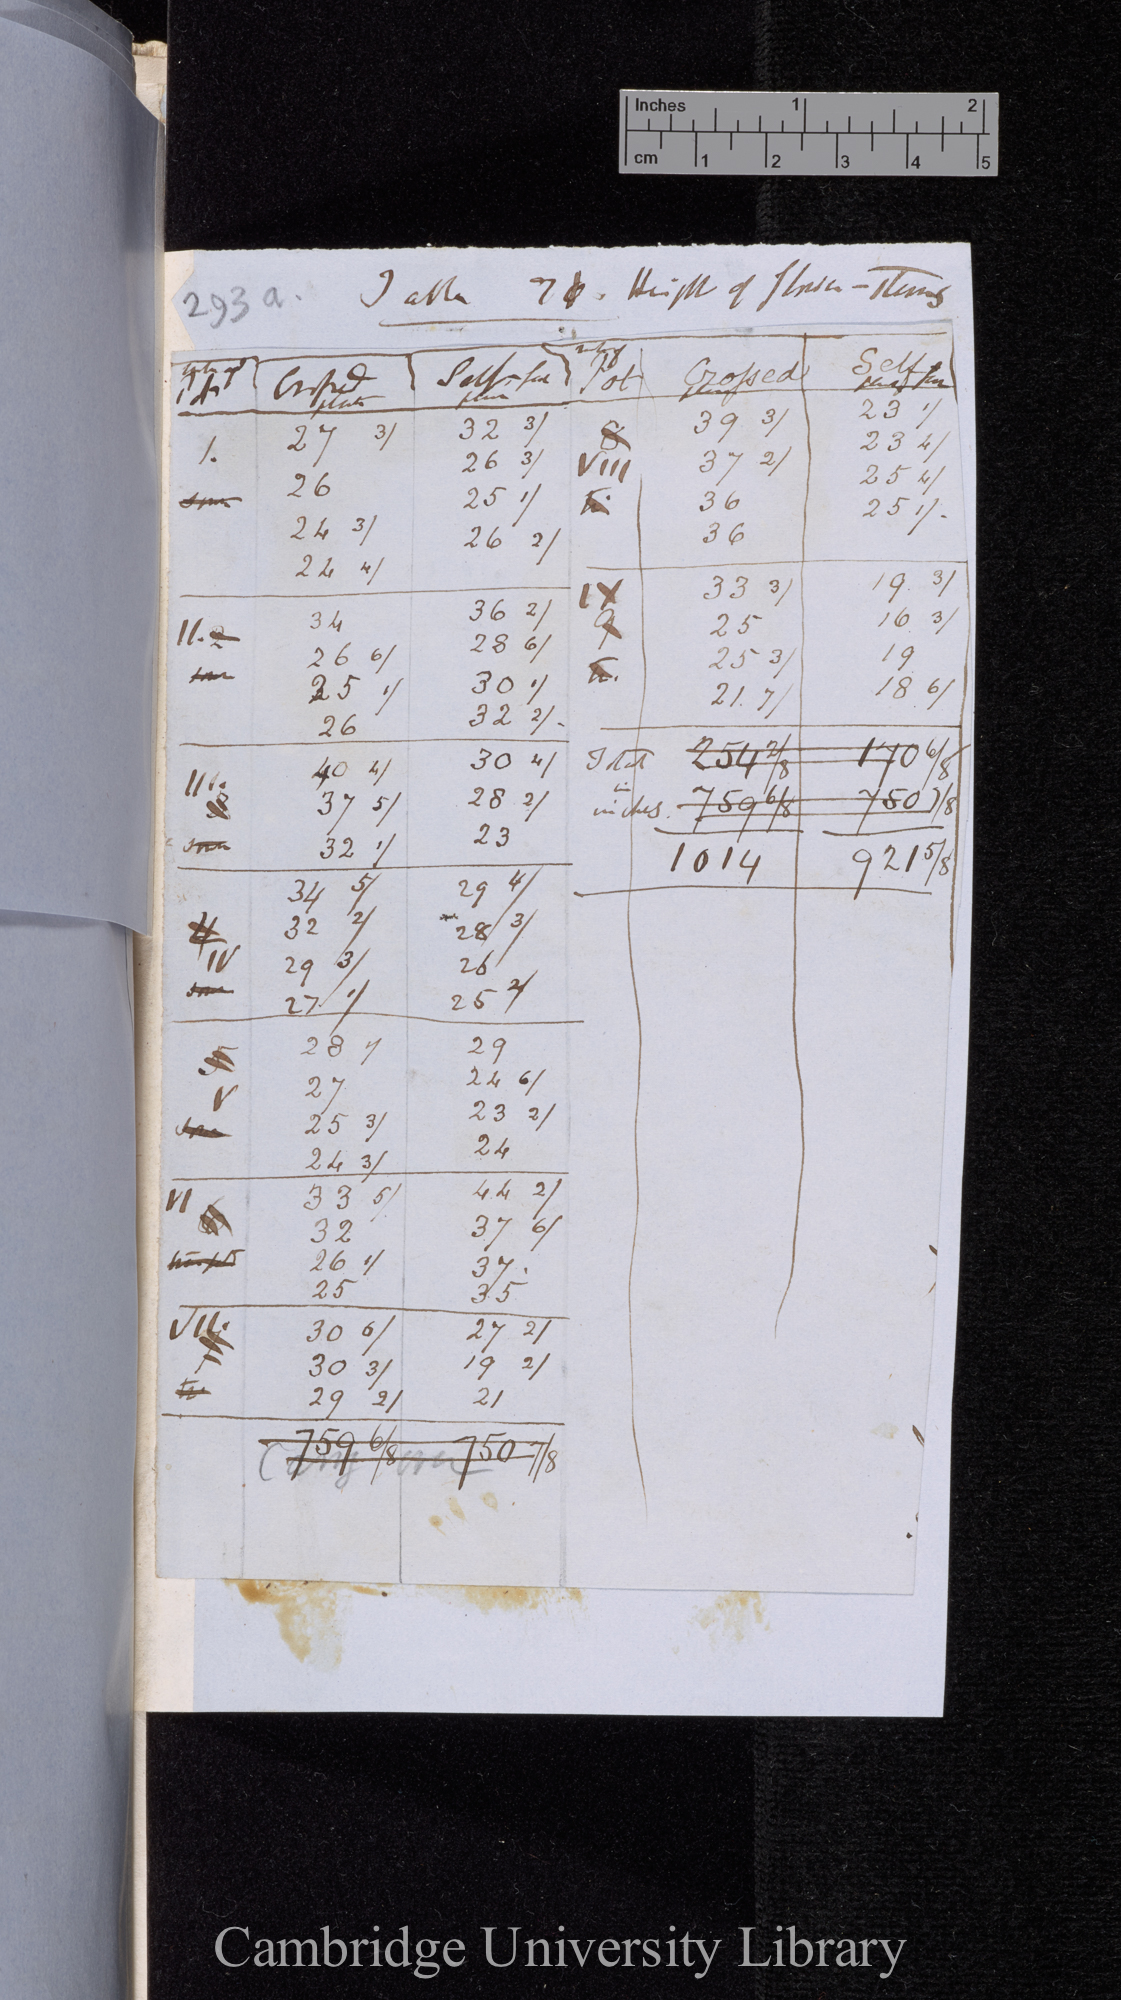 Inches 1 2
cm 1 2 3 4 5
293 a. Table 7 . Height of flower-Stems
Crossed plants Self-fer plan
I. 27 3/ 32 3/
26 3/
26 25 1/
24 3/ 26 2/
24 4/
II. 2 34 36 2/
26 6/ 28 6/
25 1/ 30 1/
26 32 2/.
III. 40 4/ 30 4/
3 37 5/ 28 2/
32 1/ 23
34 5/ 29 4/
4 32 2/ 28 3/
IV 29 3/ 26
27 1/ 25 2/
5 28 1/ 29
V 27 24 6/
25 3/ 23 2/
24 3/ 24
VI 33 5/ 44 2/
6 32 37 6/
26 1/ 37.
25 35
VII. 30 6/ 27 2/
7 30 3/ 19 2/
29 2/ 21
759 6/8 750 7/8
Pot Crossed Self fer
8 39 3/ 23 1/
VIII 37 2/ 23 4/
36 25 4/
36 25 1/.
IX 33 3/ 19. 3/
9 25 16. 3/
25 3/ 19
21. 7/ 18 6/
Total 254 2/8 170 6/8
in
inches. 759 6/8 750 7/8
1014 921 5/8
Cambridge University Library